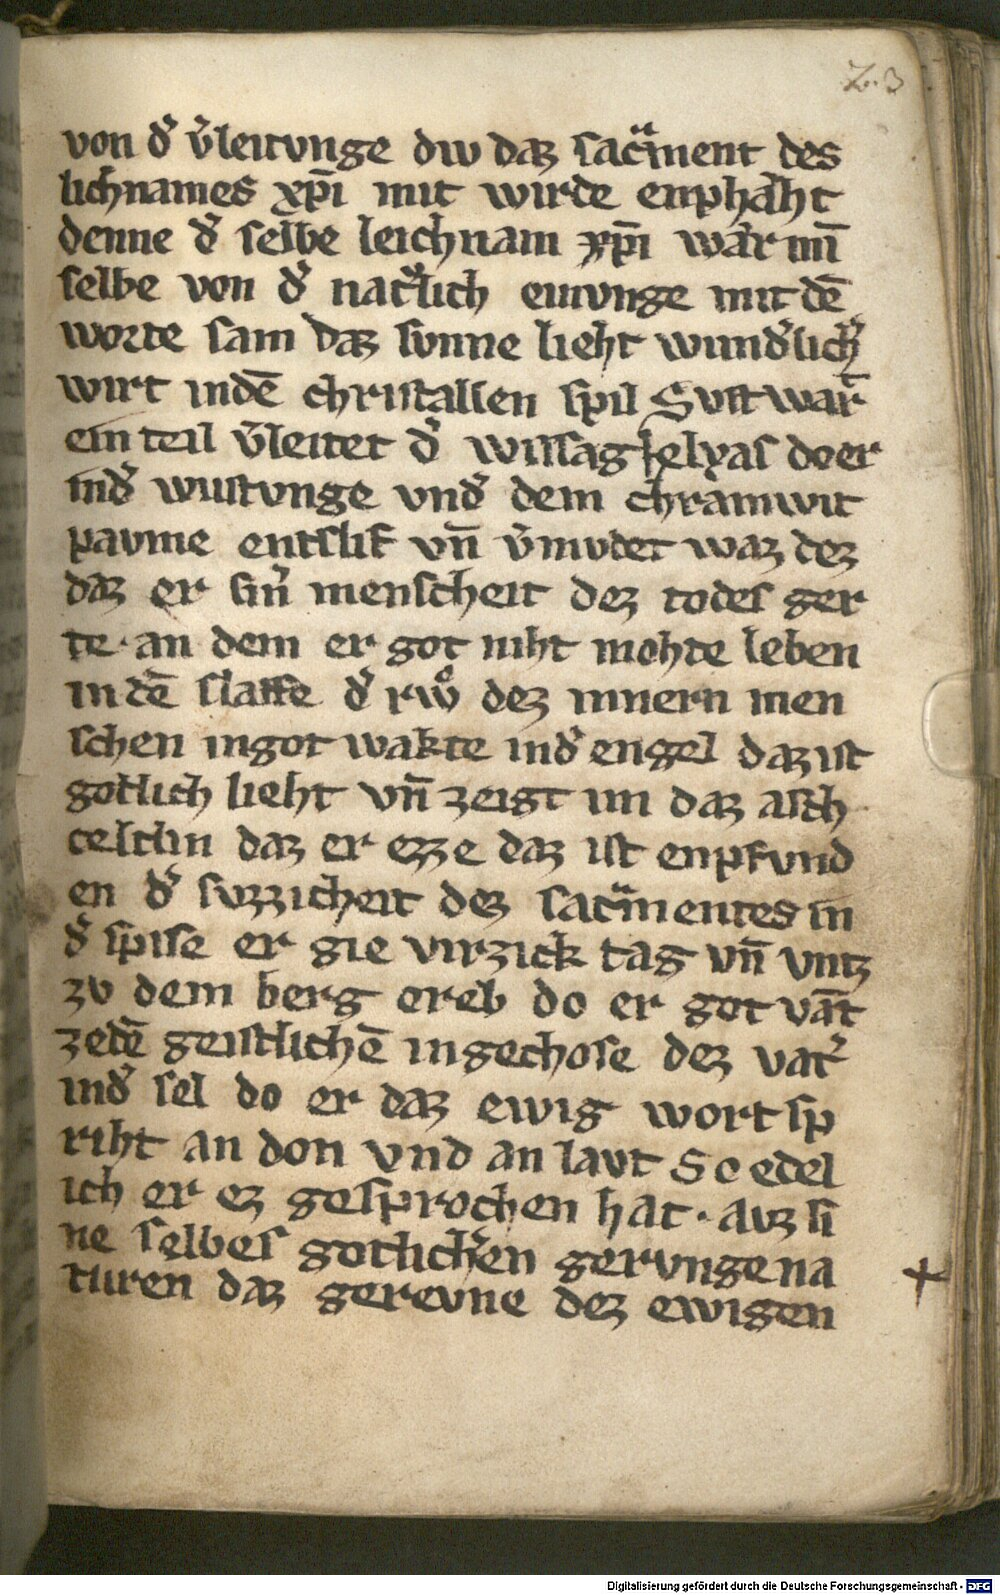 Z.3
von d̾ v̾leitvnge div daz sacͣment des
lichnames xp̄i mit wirde enphæht
denne d̾ selbe leichnam xp̄i wær im̄
selbe von d̾ natv̾lich einvnge mit dē
worte sam daz svnne lieht wund̾lich̾
wirt indē christallen spil Sust wart
ein teil v̾leitet d̾ wissag helyas do er
ind̾ wustvnge vnd̾ dem chramwit
pavme entslif vn̄ v̾mvdet waz dez
daz er sin̾ menscheit dez todes ger
te· an dem er got niht mohte leben
in dē slaffe d̾ rẘ dez innern men
schen ingot wakte ind̾ engel daz ist
gotlich lieht vn̄ zeigt im daz asch
celchin daz er ezze daz ist enpfvnd
en d̾ svzzicheit dez sacͣmentes in
d̾ spise er gie virzick tag vn̄ vntz
zv dem berg oreb do er got vāt
zedē geistlichē ingechose dez vat̾
ind̾ sel do er daz ewig wort sp
riht an don vnd an lavt So edel
ich er ez gesprochen hat· avz si
ne selbes gotlich̾en gervnge na
turen daz gerevne dez ewigen
Digitalisierung gefördert durch die Deutsche Forschungsgemeinschaft - DFG